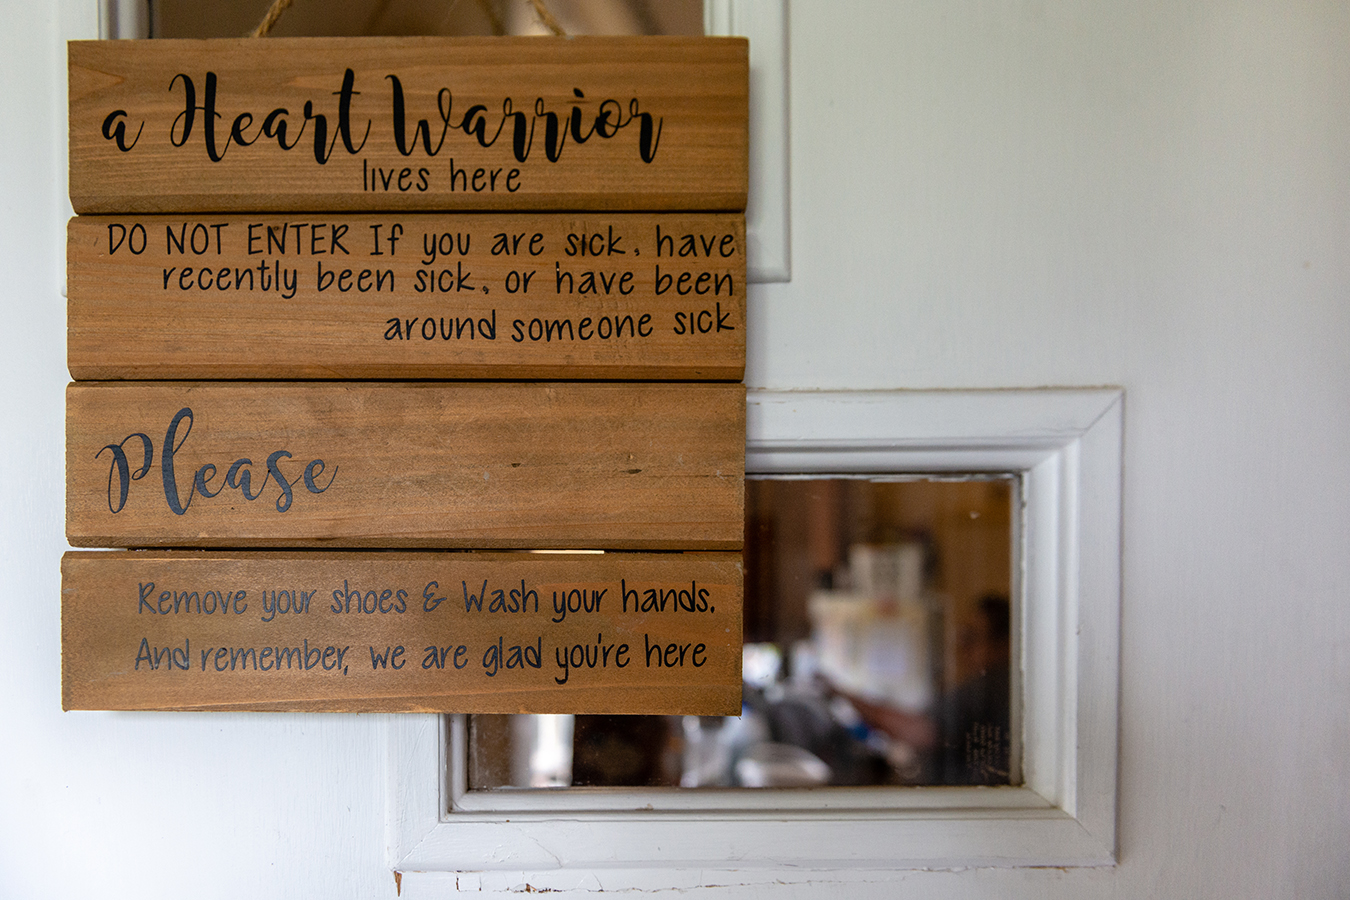 a Heart Warrior
lives here
DO NOT ENTER If you are sick, have
recently been sick, or have been
around someone sick
Please
Remove your shoes & Wash your hands.
And remember, we are glad you're here